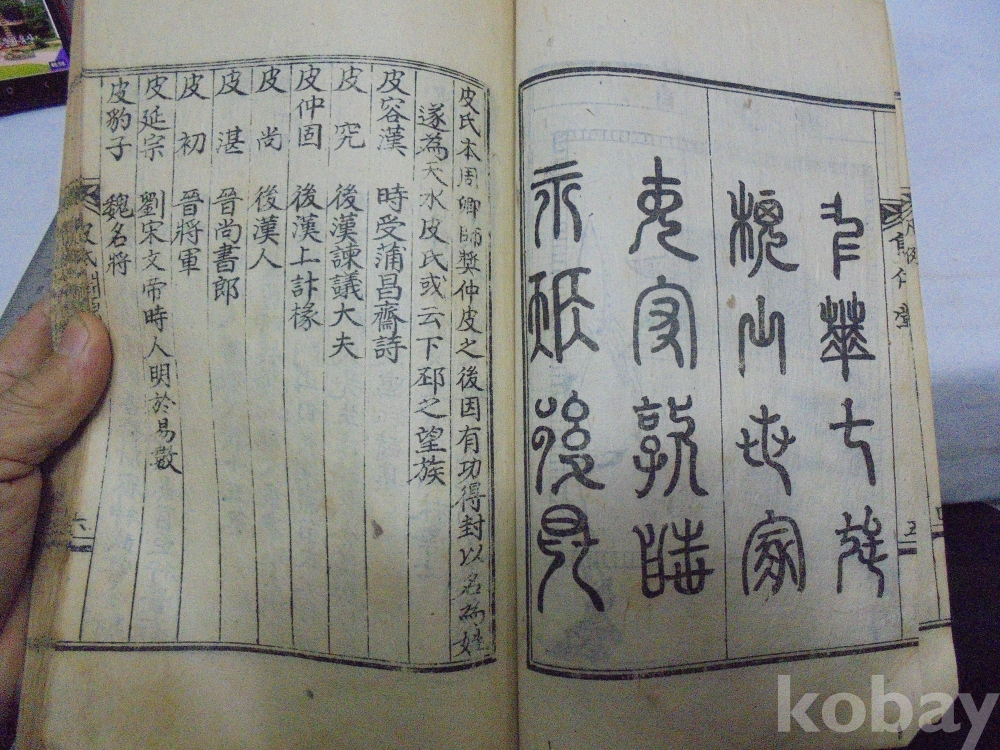 華士族
槐山世家
家敦睦
後昆
五
皮氏本周卿師樊仲皮之後因有功得封以名為姓
遂為天水皮氏或云下邳之望族
皮容漢 時受蒲昌齋詩
皮究 後漢諫議大夫
皮仲固 後漢上訃椽
皮尚 後漢人
皮湛 晉尚書郎
皮初 晉將軍
皮延宗 劉宋文帝時人明於易數
皮豹子 魏名將
六
kobay